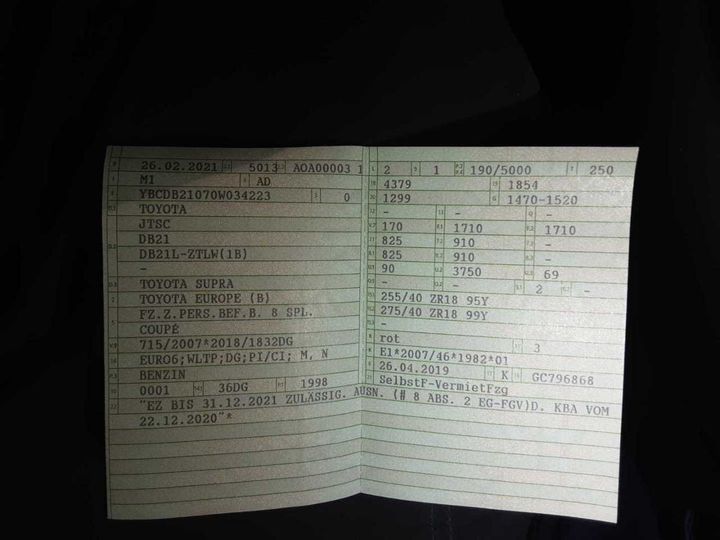 26.02.2021 5013 AOA00003 1
M1 AD
YBCDB21070W034223 0
TOYOTA
JTSC
DB21
DB21L-ZTLW(1B)
-
TOYOTA SUPRA
TOYOTA EUROPE (B)
FZ.Z.PERS.BEF.B. 8 SPL.
COUPÉ
715/2007*2018/1832DG
EURO6;WLTP;DG;PI/CI; M, N
BENZIN
0001 36DG 1998
L 2 9 1 190/5000 T 250
18 4379 19 1854
20 1299 G 1470-1520
- - -
170 1710 1710
825 910 -
825 910 -
90 3750 69
- - 2 -
255/40 ZR18 95Y
275/40 ZR18 99Y
-
rot 3
E1*2007/46*1982*01
26.04.2019 K GC796868
SelbstF-VermietFzg
"EZ BIS 31.12.2021 ZULÄSSIG. AUSN. (# 8 ABS. 2 EG-FGV)D. KBA VOM
22.12.2020"*